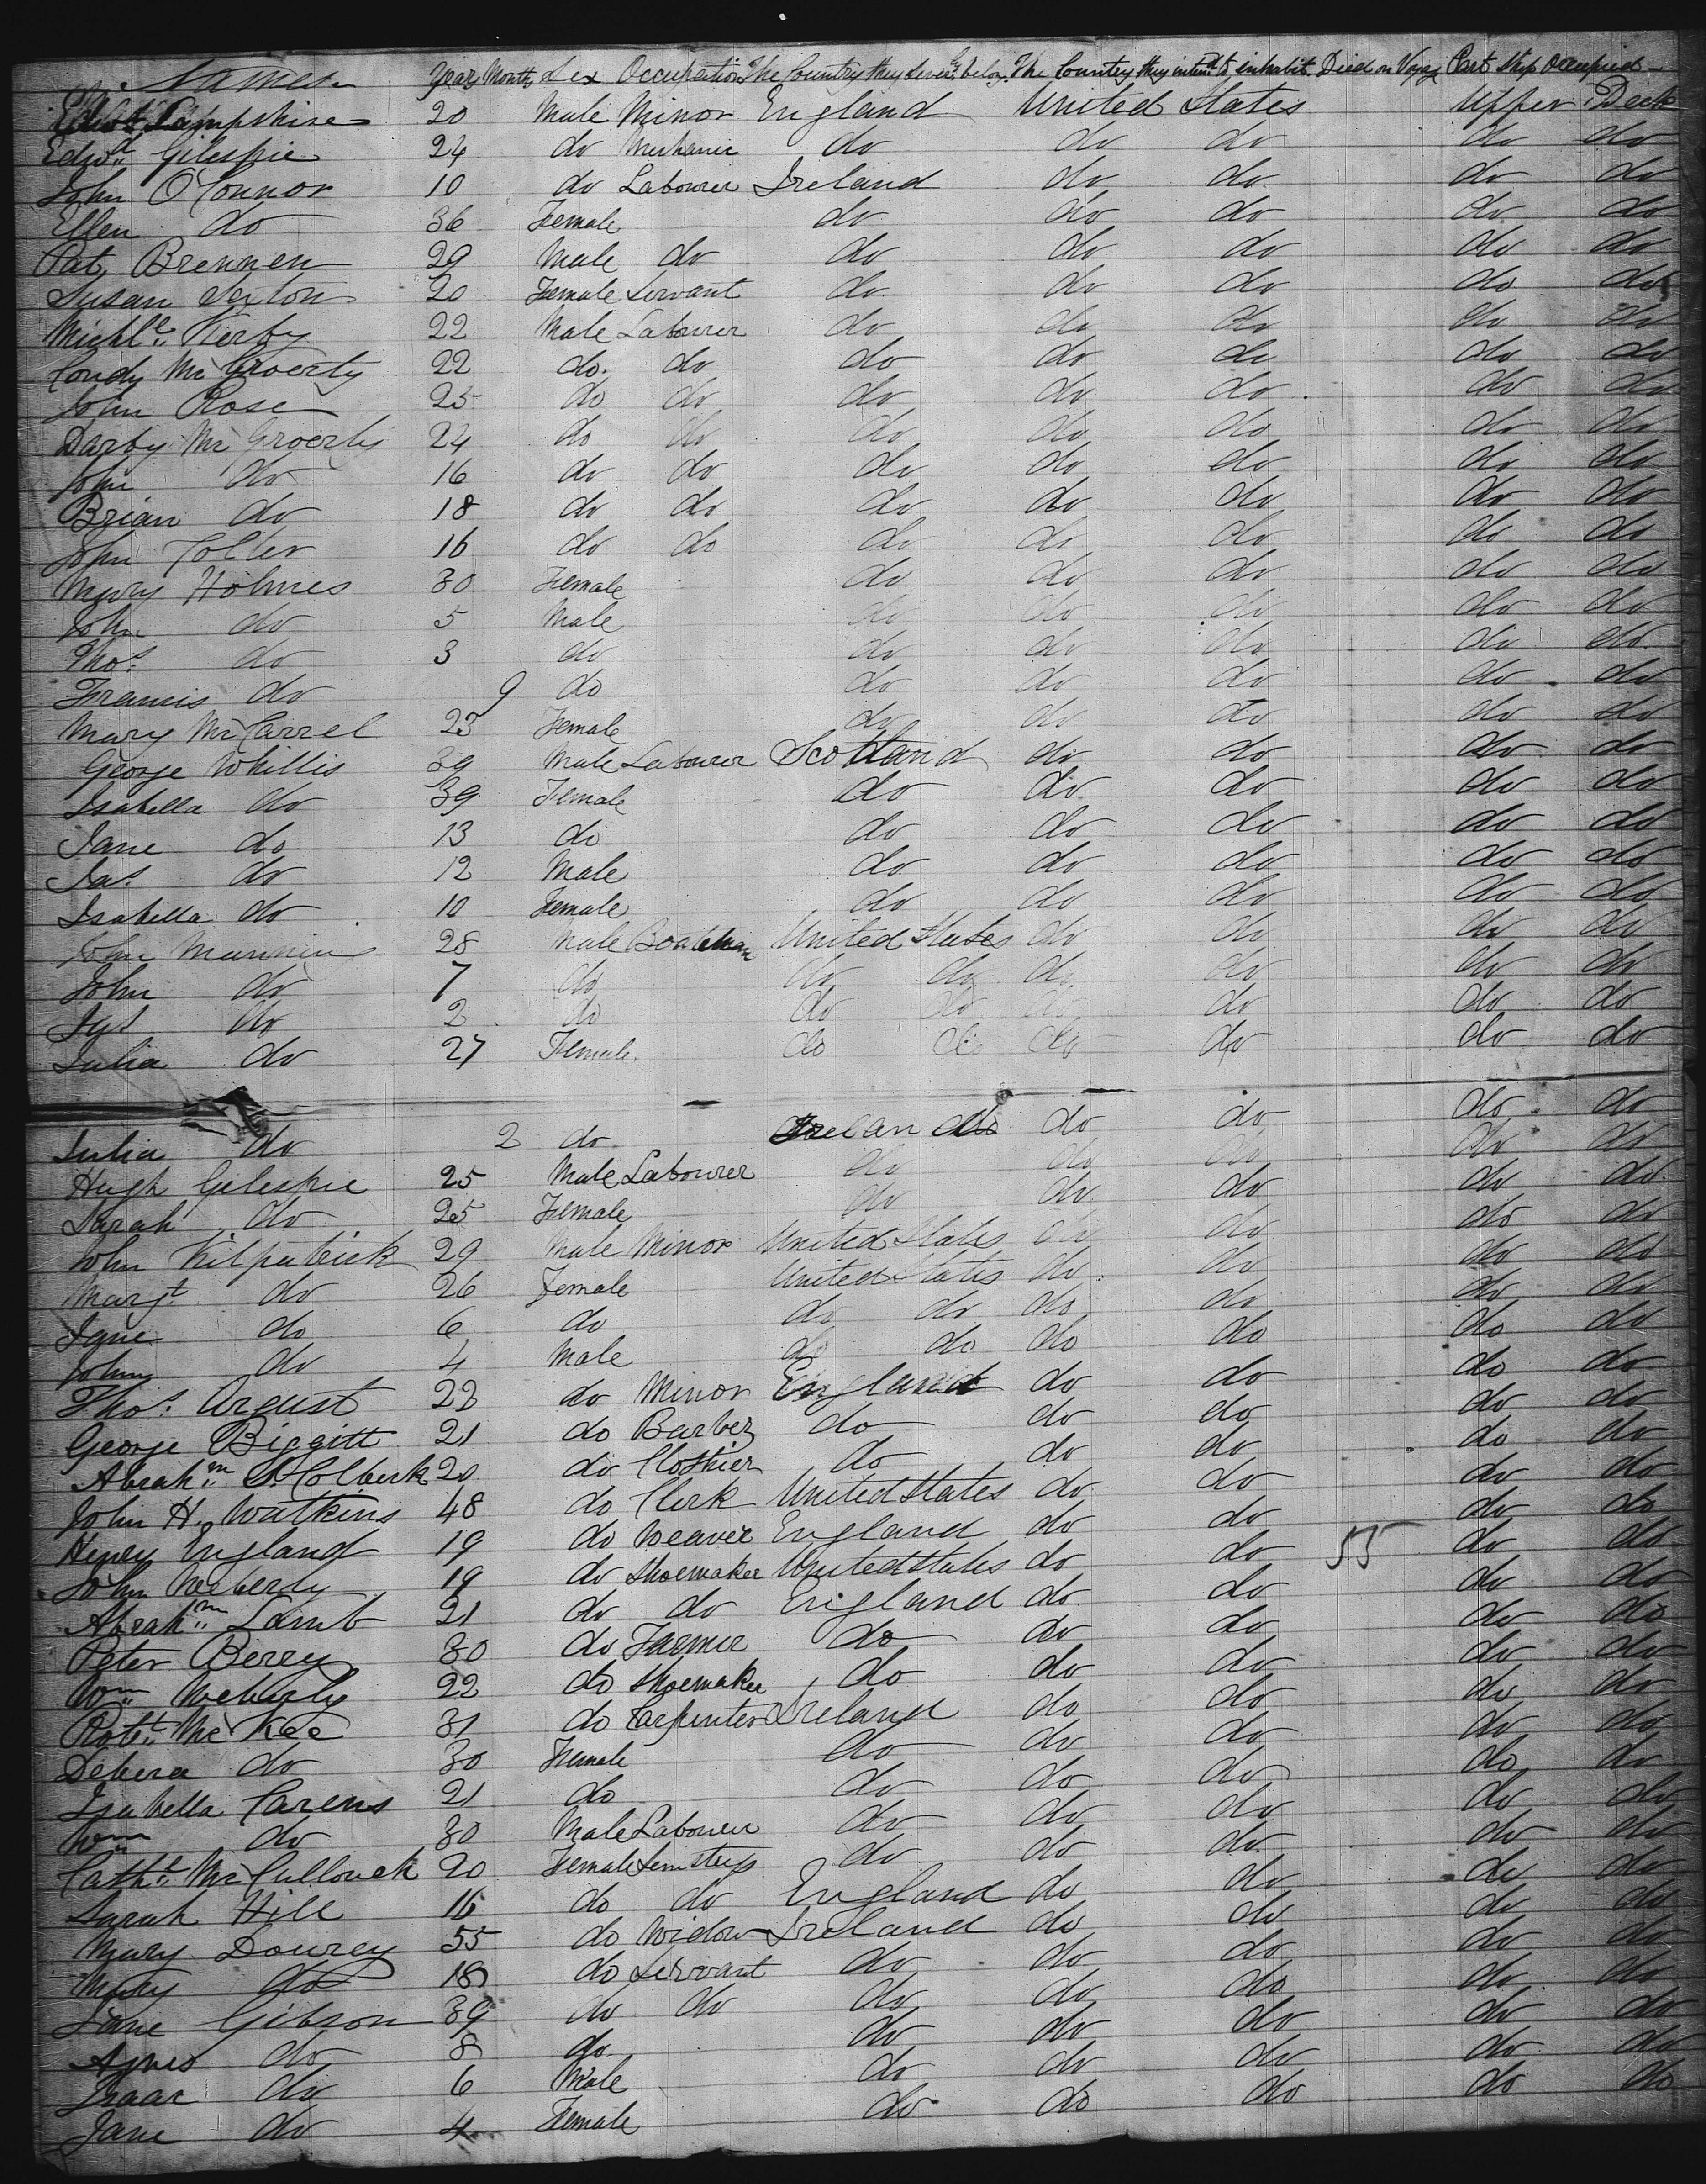 Names Years Months Sex Occupation The Country they Sever^y belong The Country they intend to inhabit Died on Voyag Part Ship Occupied
Lampshire 20 Male Minor England United States Upper Deck
Edwd Gilespie 24 do Mechanic do do do do do
John O'Connor 10 do Labourer Ireland do do do do
Ellen do 36 Female do do do do do
Pat Brennen 29 Male do do do do do do
Susan Sexton 20 Female Servant do do do do do
Michl Kerby 22 Male Labourer do do do do do
Condy McGroerty 22 do do do do do do do
John Rose 25 do do do do do do do
Darby McGroerty 24 do do do do do do do
John do 16 do do do do do do do
Brian do 18 do do do do do do do
John 16 do do do do do do do
Mary Holmes 30 Female do do do do do
John do 5 Male do do do do do
Thos do 3 do do do do do do
Francis do 9 do do do do do do
Mary McCarrel 23 Female do do do do do
George Whillis 39 Male Labourer Scotland do do do do
Isabella do 39 Female do do do do do
Jane do 13 do do do do do do
Jas do 12 Male do do do do do
Isabella do 10 Female do do do do do
John 28 Male Boatman United States do do do do
John do 7 do do do do do do do
do 2 do do do do do do do
Julia do 27 Female do do do do do do
Julia do 2 do Ireland do do do do
Hugh Gilespie 25 Male Labourer do do do do do
Sarah do 25 Female do do do do do
John Kilpatrick 29 Male Minor United States do do do do
Margt do 26 Female United States do do do do
Jane do 6 do do do do do do do
Johny do 4 Male do do do do do do
Thos Argust 22 do Minor England do do do do
George Biggitt 21 do Barber do do do do do
Abrahm S. Colbeck 20 do Clothier do do do do do
John H. Watkins 48 do Clerk United States do do do do
Henry England 19 do Weaver England do do do do
John 19 do Shoemaker United States do do 55 do do
Abrahm Lamb 21 do do England do do do do
Peter Berry 30 do Farmer do do do do do
Wm 22 do Shoemaker do do do do do
Robt McKee 31 do Carpenter Ireland do do do do
Debera do 30 Female do do do do do
Isabella Carens 21 do do do do do do
Wm do 30 Male Labourer do do do do do
Catht McCullouck 20 Female do do do do do
Sarah Hill 16 do do England do do do do
Mary Dowrey 55 do Widow Ireland do do do do
Mary do 18 do Servant do do do do do
Jane Gibson 39 do do do do do do do
Agnes do 8 do do do do do do
Isaac do 6 Male do do do do do
Jane do 4 Female do do do do do